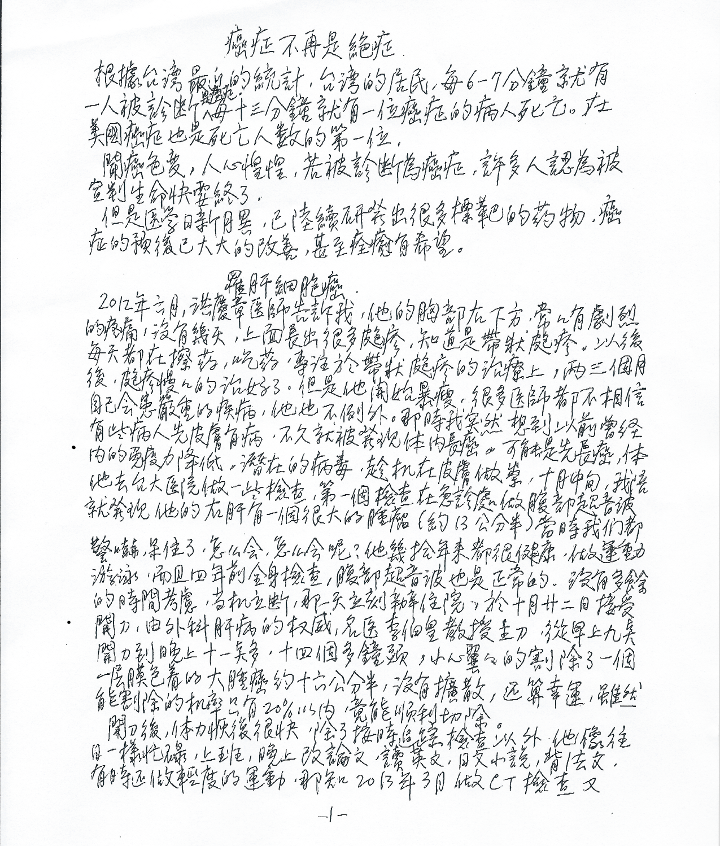 癌症不再是絕症.
根據台湾最近的統計，台湾的居民，每6-7分鐘就有
一人被診断癌症，每十三分鐘就有一位癌症的病人死亡。在
美國癌症也是死亡人数的第一位.
聞癌色变，人心惶惶，若被診断為癌症，許多人認為被
宣判生命快要終了.
但是医学日新月異，已陸續研発出很多標靶的药物，癌
症的預後已大大的改善，甚至痊癒有希望。
罹肝細胞癌.
2012年六月，洪慶章医師告訴我，他的胸部右下方，常々有劇烈
的疼痛，没有幾天，上面長出很多皰疹，知道是帶狀皰疹。以後
每天都在擦药，吃药，專注於帶狀皰疹的治療上，两三個月
後，皰疹慢々的治好了。但是他開始暴瘦，很多医師都不相信
自己会患嚴重的疾病，他也不例外。那時我突然想到以前曾経
有些病人先皮膚有病，不久就被発現体内長癌。可能是先長癌，体
内的免疫力降低，潛在的病毒，趁机在皮膚做祟，十月中旬，我陪
他去台大医院做一些檢查，第一個檢查在急診處做腹部超音波
就発現他的右肝有一個很大的腫瘤（約13公分半）當時我們都
驚嚇，呆住了，怎么会，怎么会呢？他幾拾年来都很健康，做運動
游泳，而且四年前全身檢查，腹部超音波也是正常的．没有多餘
的時間考慮，当机立断，那一天立刻辦住院，於十月廿二日接受
開刀，由外科肝病的权威，名医李伯皇教授主刀，從早上九点
開刀到晚上十一点多，十四個多鐘頭，小心翼々的割除了一個
一层膜包着的大腫瘤約十六公分半，没有擴散，还算幸運，雖然
能割除的机率只有20%以内，竟能順利切除。
開刀後，体力恢後很快，除了按時追踪檢查以外，他像往
日一樣忙碌，上班，晚上改論文，讀英文，日文小説，背法文．
有時还做輕度的運動，那知2013年3月做CT檢查又
-1-